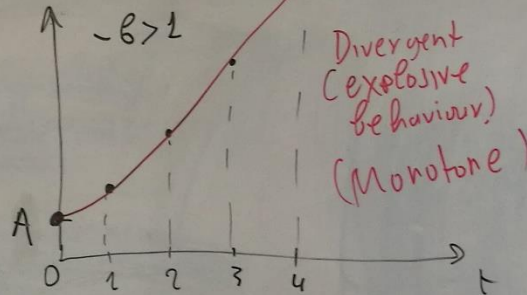 -b>1
Divergent
(explosive
behaviour)
(Monotone)
A
0 1 2 3 4 t